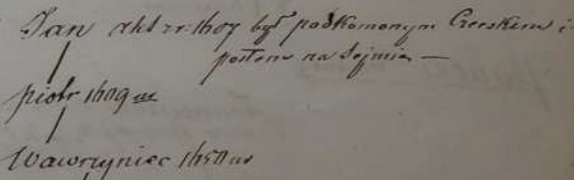 Jan akt z r. 1607 był podkomorzym Czerskim i
posłem na Sejmie —
piotr 1609
Wawrzyniec 1650